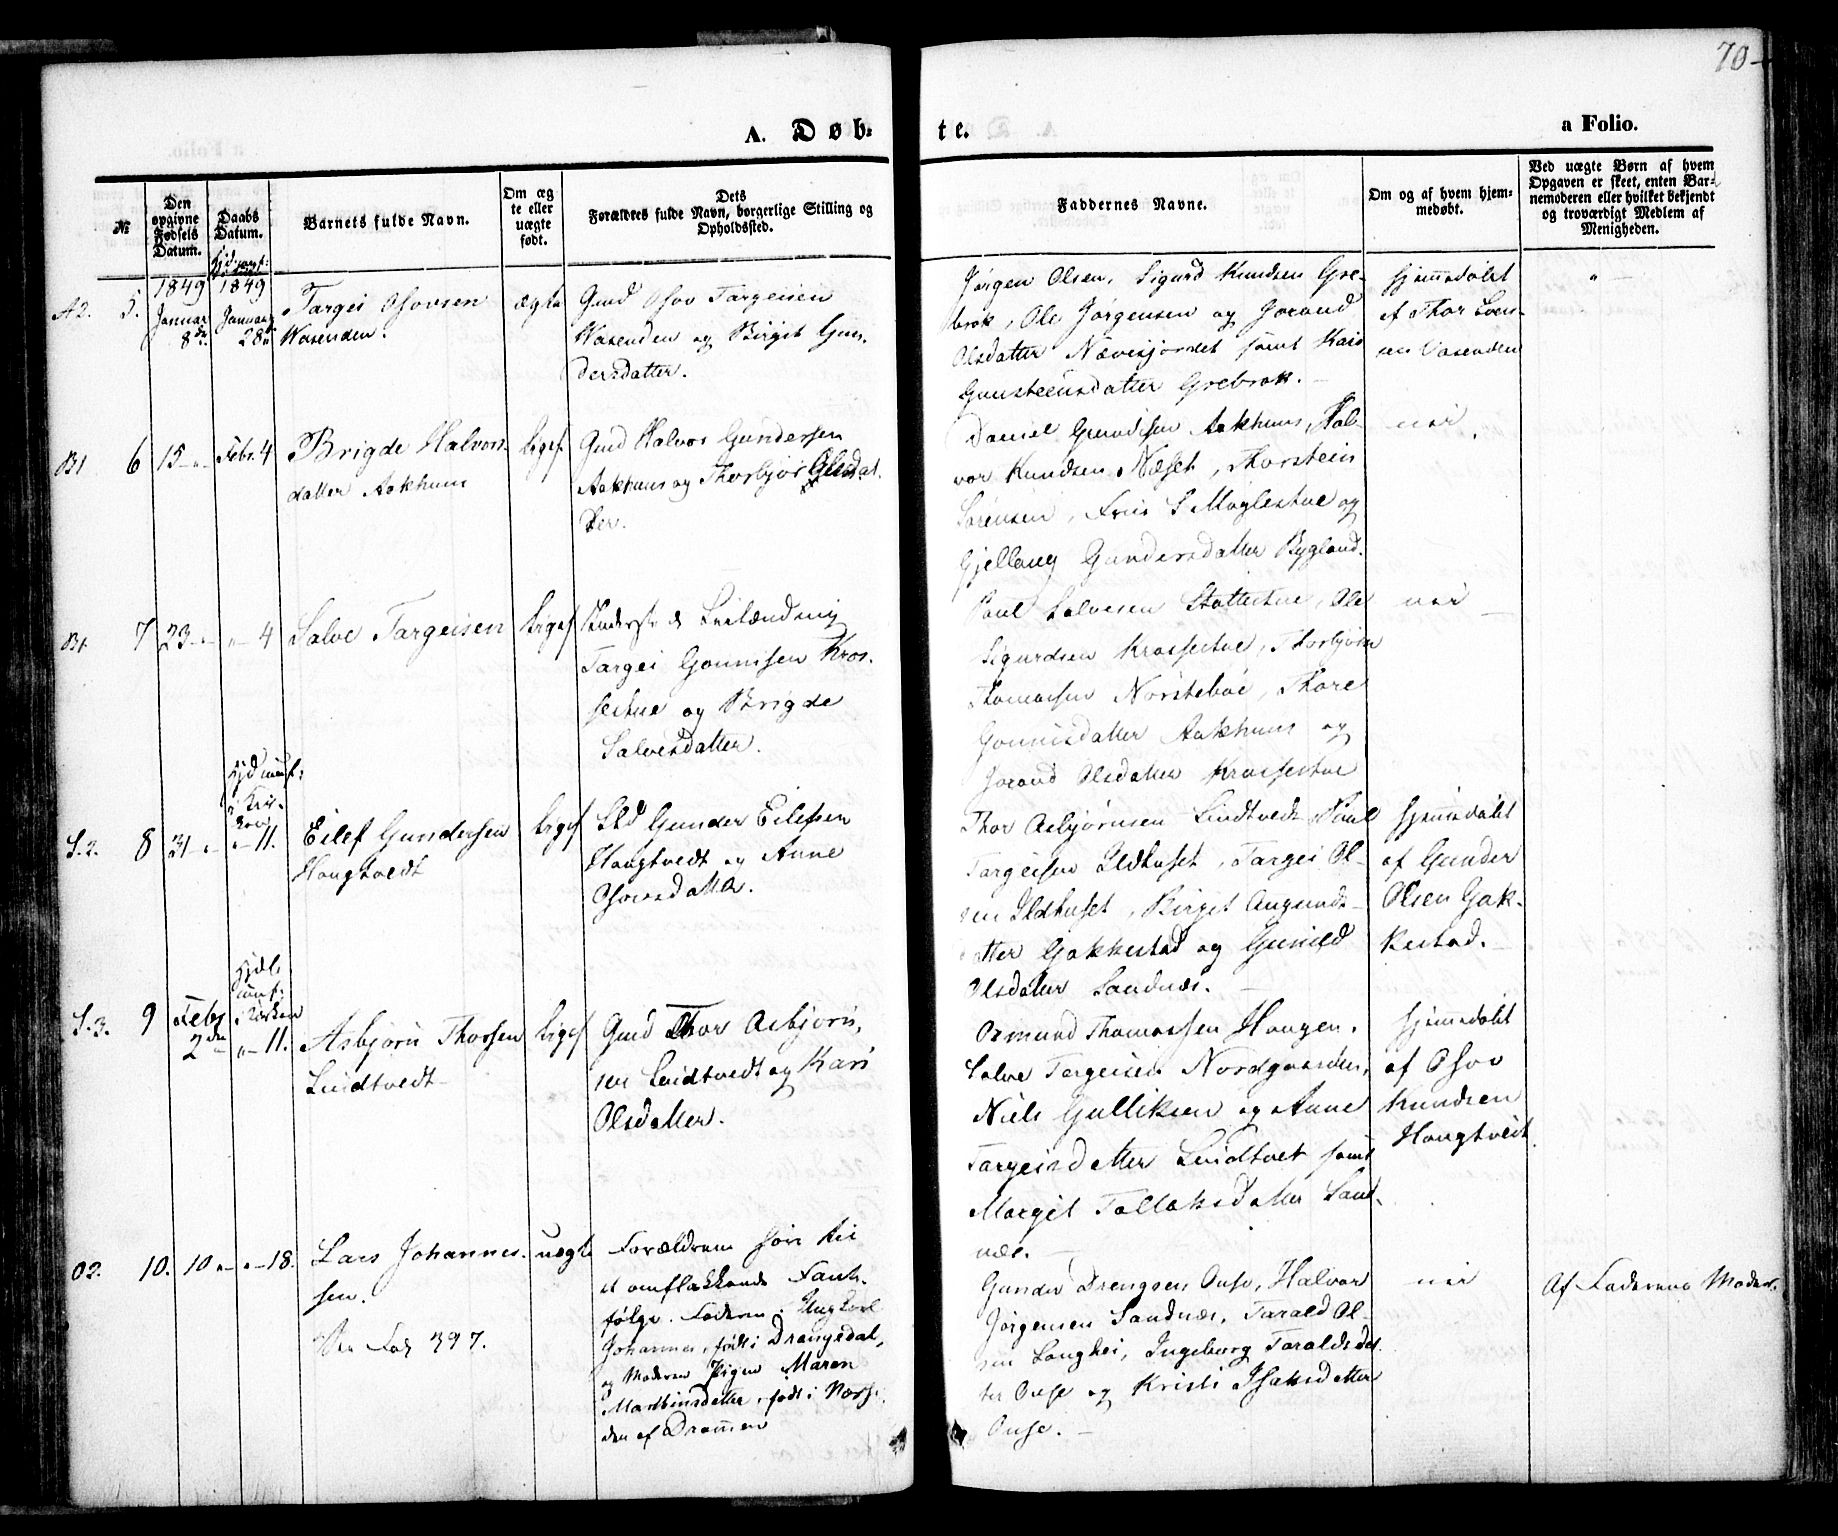 70
A. Døb-
te.
a Folio.
№
Den opgivne Fødsels Datum.
Daabs Datum.
Barnets fulde Navn.
Om ægte eller uægte født.
Dets Forældres fulde Navn, borgerlige Stilling og Opholdssted.
Faddernes Navne.
Om og af hvem hjemmedøbt.
Ved uægte Børn af hvem Opgaven er skeet, enten Barnemoderen eller hvilket bekjendt og troværdigt Medlem af Menigheden.
A2. 5.
1849
Januar
8de
1849
Januar
28de
Targei Osovsen
Vasenden.
ægte
Gmd Osov Targeisen
Vasenden og Birgit Gun-
dersdatter.
Jørgen Olsen, Sigurd Knudsen Gre-
brok, Ole Jørgensen og Jorand
Olsdatter Nævesjordet samt Kari
Gunsteensdatter Grebrok.
hjemmedøbt
af Thor Even-
sen Vasenden
B1 6 15
Febr. 4
Brigde Halvors-
datter Aakhuus
ligesf
Gmd Halvor Gundersen
Aakhuus og Thorbjør Olsdat-
ter.
Daniel Gundersen Aakhuus, Hal-
vor Knudsen Næset, Thorstein
Sørensen, Friis S Moglestue og
Gjellaug Gundersdatter Bygland.
nei
B1. 7 23 4
Salve Targeisen
ligesf
Targei Gonnisen Kros-
sestue og Brigde
Salvesdatter.
Poul Salvesen Stallestue, Ole
Sigurdsen Krossestue, Thorbjørn
Thomassen Norsteböe, Thore
Gonnisdatter Aakhuus og
Jorand Olsdatter Krossestue
nei
S.2. 8 31 11.
Eilef Gundersen
Hougtvedt
ligesf
Gunder Eilefsen
Hougtvedt og Anne
Osovsdatter.
Thor Asbjørnsen Lindtvedt, Poul
Targeisen Ildhuset, Targei Ol-
sen Ildhuset, Birgit Aasmunds-
datter Gakkestad og Gunild
Olsdatter Sandnæs.
hjemmedøbt
af Gunder
Olsen Gak-
kestad.
S.3. 9
Febr
2den
11.
Asbjørn Thorsen
Lindtvedt
ligesf
Gmd Thor Asbjørn-
sen Lindtvedt og Kari
Olsdatter.
Osmund Thomassen Hougen,
Salve Targeisen Nordgaarden,
Niels Gulliksen og Anne
Targeisdatter Lindtvet samt
Margit Tallaksdatter Sand-
næs.
hjemmedøbt
af Osov
Knudsen
Hougtveit.
O2. 10. 10 18.
Lars Johannes-
sen.
397.
uægte
Forældrene høre til
et omflakkende Fante-
følge. Faderen: Ungkarl
Johannes, født i Drangedal,
og Moderen Pigen Maren
Marthinsdatter, født i Nær-
den af Drammen
Gunder Drengsen Ouse, Halvor
Jørgensen Sandnæs, Tarald Ol-
sen Langhei, Ingeborg Taraldsdat-
ter Ouse og Kristi Isaksdatter
Ouse.
nei
Af Faderens Moder.